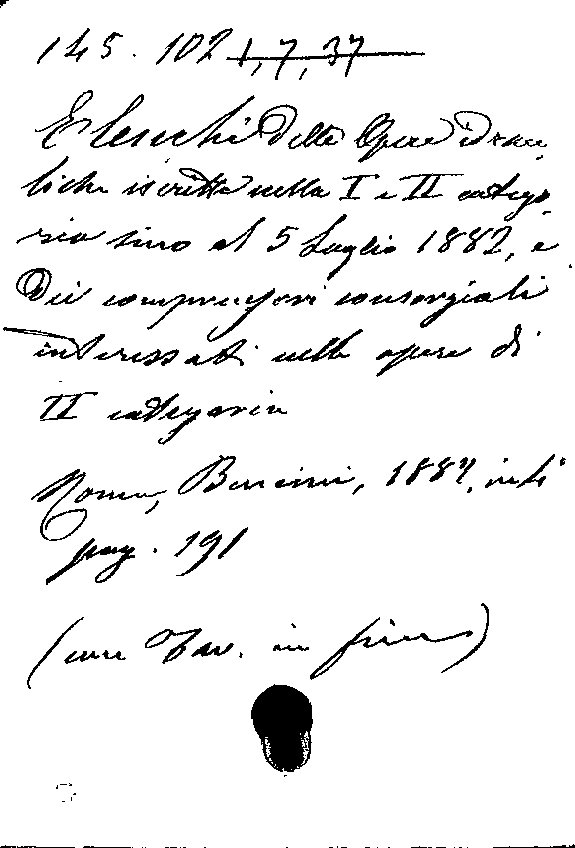 145. 102 1,7,37
Elenchi delle Opere idrau
liche iscritte nella I e II catego
ria sino al 5 Luglio 1882, e
dei comprensori consorziali
interessati nelle opere di
II categoria
Roma, Bencini, 1882, in 4°
pag. 191
(una Tav. in fine)